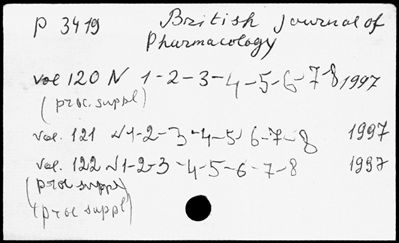 P 3419 British Journal of
Pharmacology
vol 120 N 1-2-3-4-5-6-7-8 1997
(proc. suppl)
vol. 121 N 1-2-3-4-5-6-7-8 1997
vol. 122 N 1-2-3-4-5-6-7-8 1997
(proc suppl)
(proc suppl)